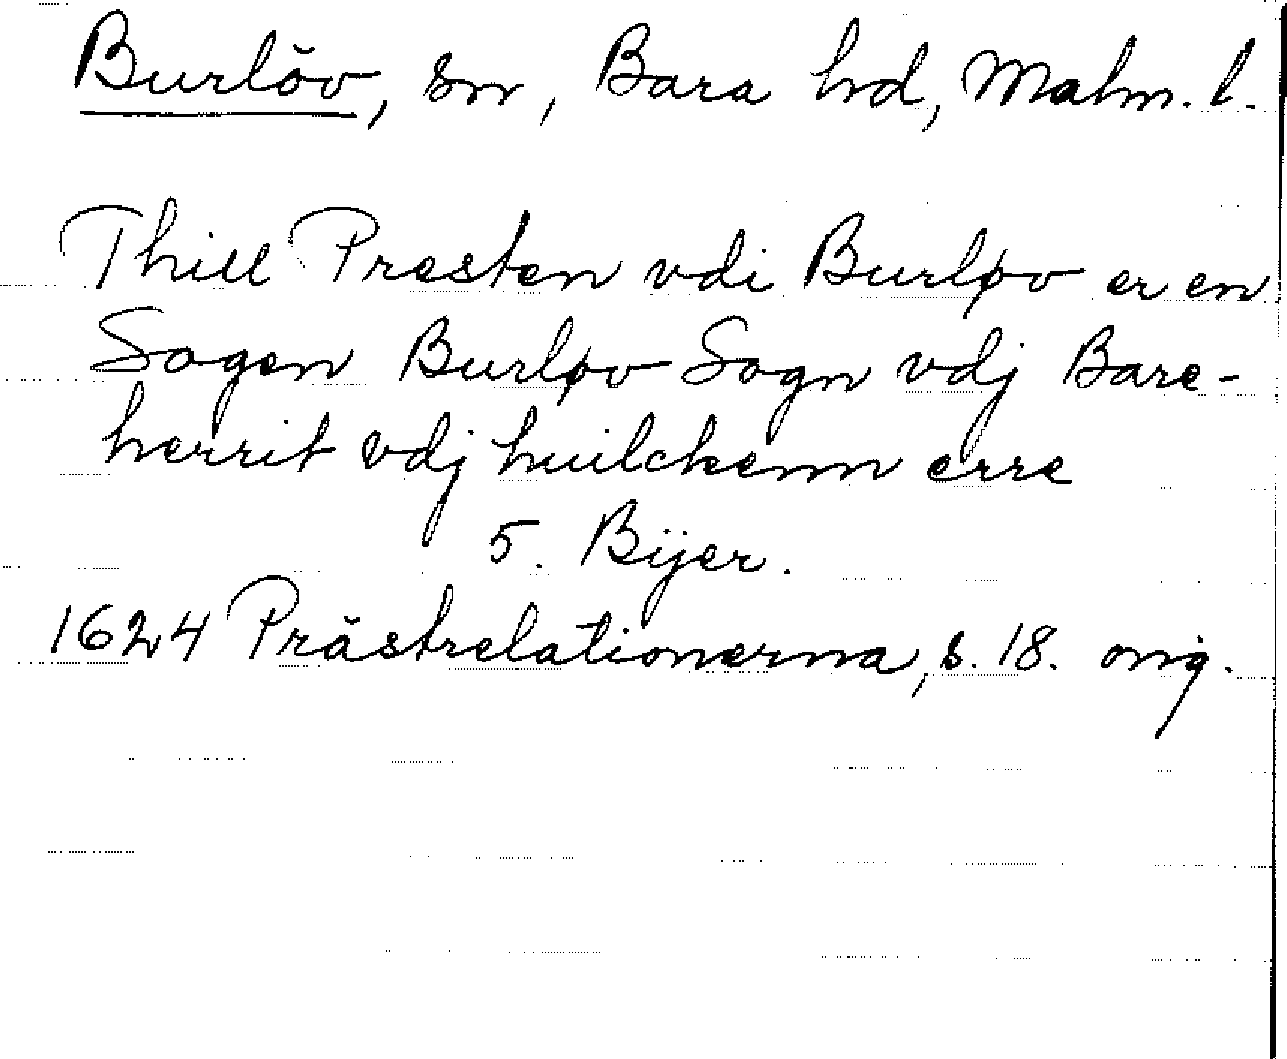 Burlöv, sn, Bara hd, Malm. l.
Thill Presten vdi Burløv er en
Sogen Burløv Sogn vdj Bare-
herrit vdj huilckenn erre
5. Bÿer.
1624 Prästrelationerna, s. 18. orig.